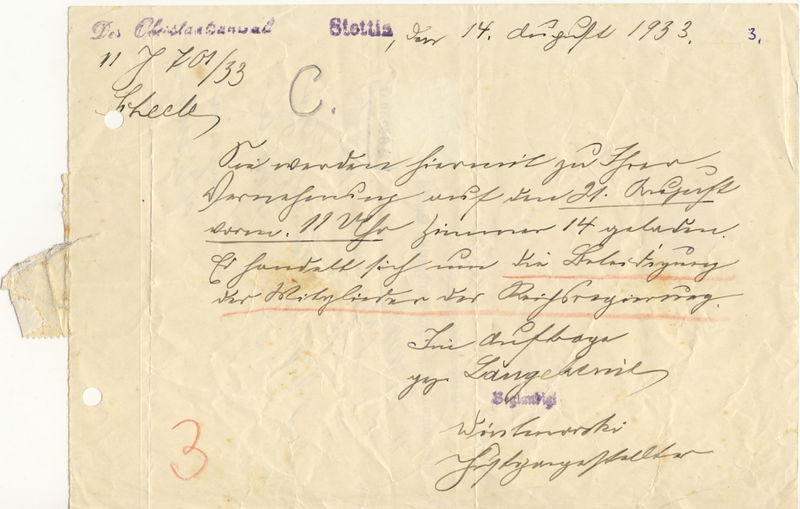 Der Oberstaatsanwalt Stettin, den 14. August 1933. 3.
11 J 701/33
C.
Sie werden hiermit zu Ihrer
Vernehmung auf den 21. August
vorm. 11 Uhr Zimmer 14 geladen.
Es handelt sich um die Beleidigung
der Mitglieder der Reichsregierung.
Im Auftrage
gez.
Beglaubigt
Justizangestellter
3